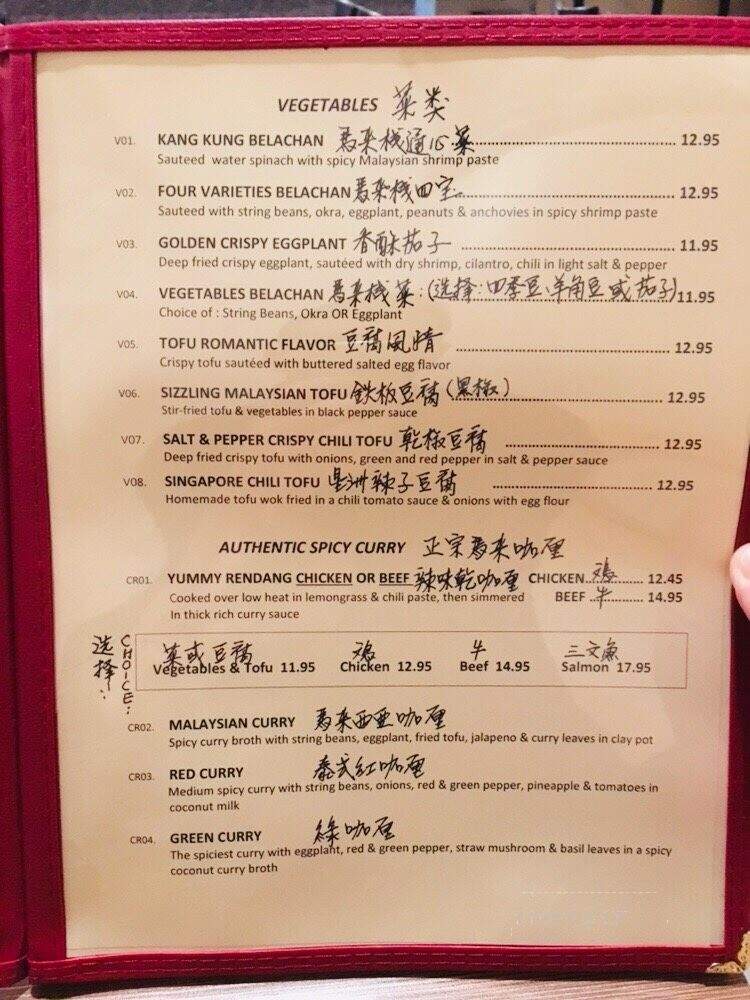 VEGETABLES 菜类
V01. KANG KUNG BELACHAN 馬来栈通心菜 12.95
Sauteed water spinach with spicy Malaysian shrimp paste
V02. FOUR VARIETIES BELACHAN 馬来栈四宝 12.95
Sauteed with string beans, okra, eggplant, peanuts & anchovies in spicy shrimp paste
V03. GOLDEN CRISPY EGGPLANT 香酥茄子 11.95
Deep fried crispy eggplant, sautéed with dry shrimp, cilantro, chili in light salt & pepper
V04. VEGETABLES BELACHAN 馬来栈菜:(选择:四季豆、羊角豆或茄子) 11.95
Choice of : String Beans, Okra OR Eggplant
V05. TOFU ROMANTIC FLAVOR 豆腐風情 12.95
Crispy tofu sautéed with buttered salted egg flavor
V06. SIZZLING MALAYSIAN TOFU 鉄板豆腐(黑椒) 12.95
Stir-fried tofu & vegetables in black pepper sauce
V07. SALT & PEPPER CRISPY CHILI TOFU 乾椒豆腐 12.95
Deep fried crispy tofu with onions, green and red pepper in salt & pepper sauce
V08. SINGAPORE CHILI TOFU 星洲辣子豆腐 12.95
Homemade tofu wok fried in a chili tomato sauce & onions with egg flour
AUTHENTIC SPICY CURRY 正宗馬来咖哩
CR01. YUMMY RENDANG CHICKEN OR BEEF 辣味乾咖哩 CHICKEN 鸡 12.45
Cooked over low heat in lemongrass & chili paste, then simmered BEEF 牛 14.95
In thick rich curry sauce
选择: CHOICE:
菜或豆腐 鸡 牛 三文魚
Vegetables & Tofu 11.95 Chicken 12.95 Beef 14.95 Salmon 17.95
CR02. MALAYSIAN CURRY 馬来西亚咖哩
Spicy curry broth with string beans, eggplant, fried tofu, jalapeno & curry leaves in clay pot
CR03. RED CURRY 泰式红咖哩
Medium spicy curry with string beans, onions, red & green pepper, pineapple & tomatoes in
coconut milk
CR04. GREEN CURRY 綠咖哩
The spiciest curry with eggplant, red & green pepper, straw mushroom & basil leaves in a spicy
coconut curry broth